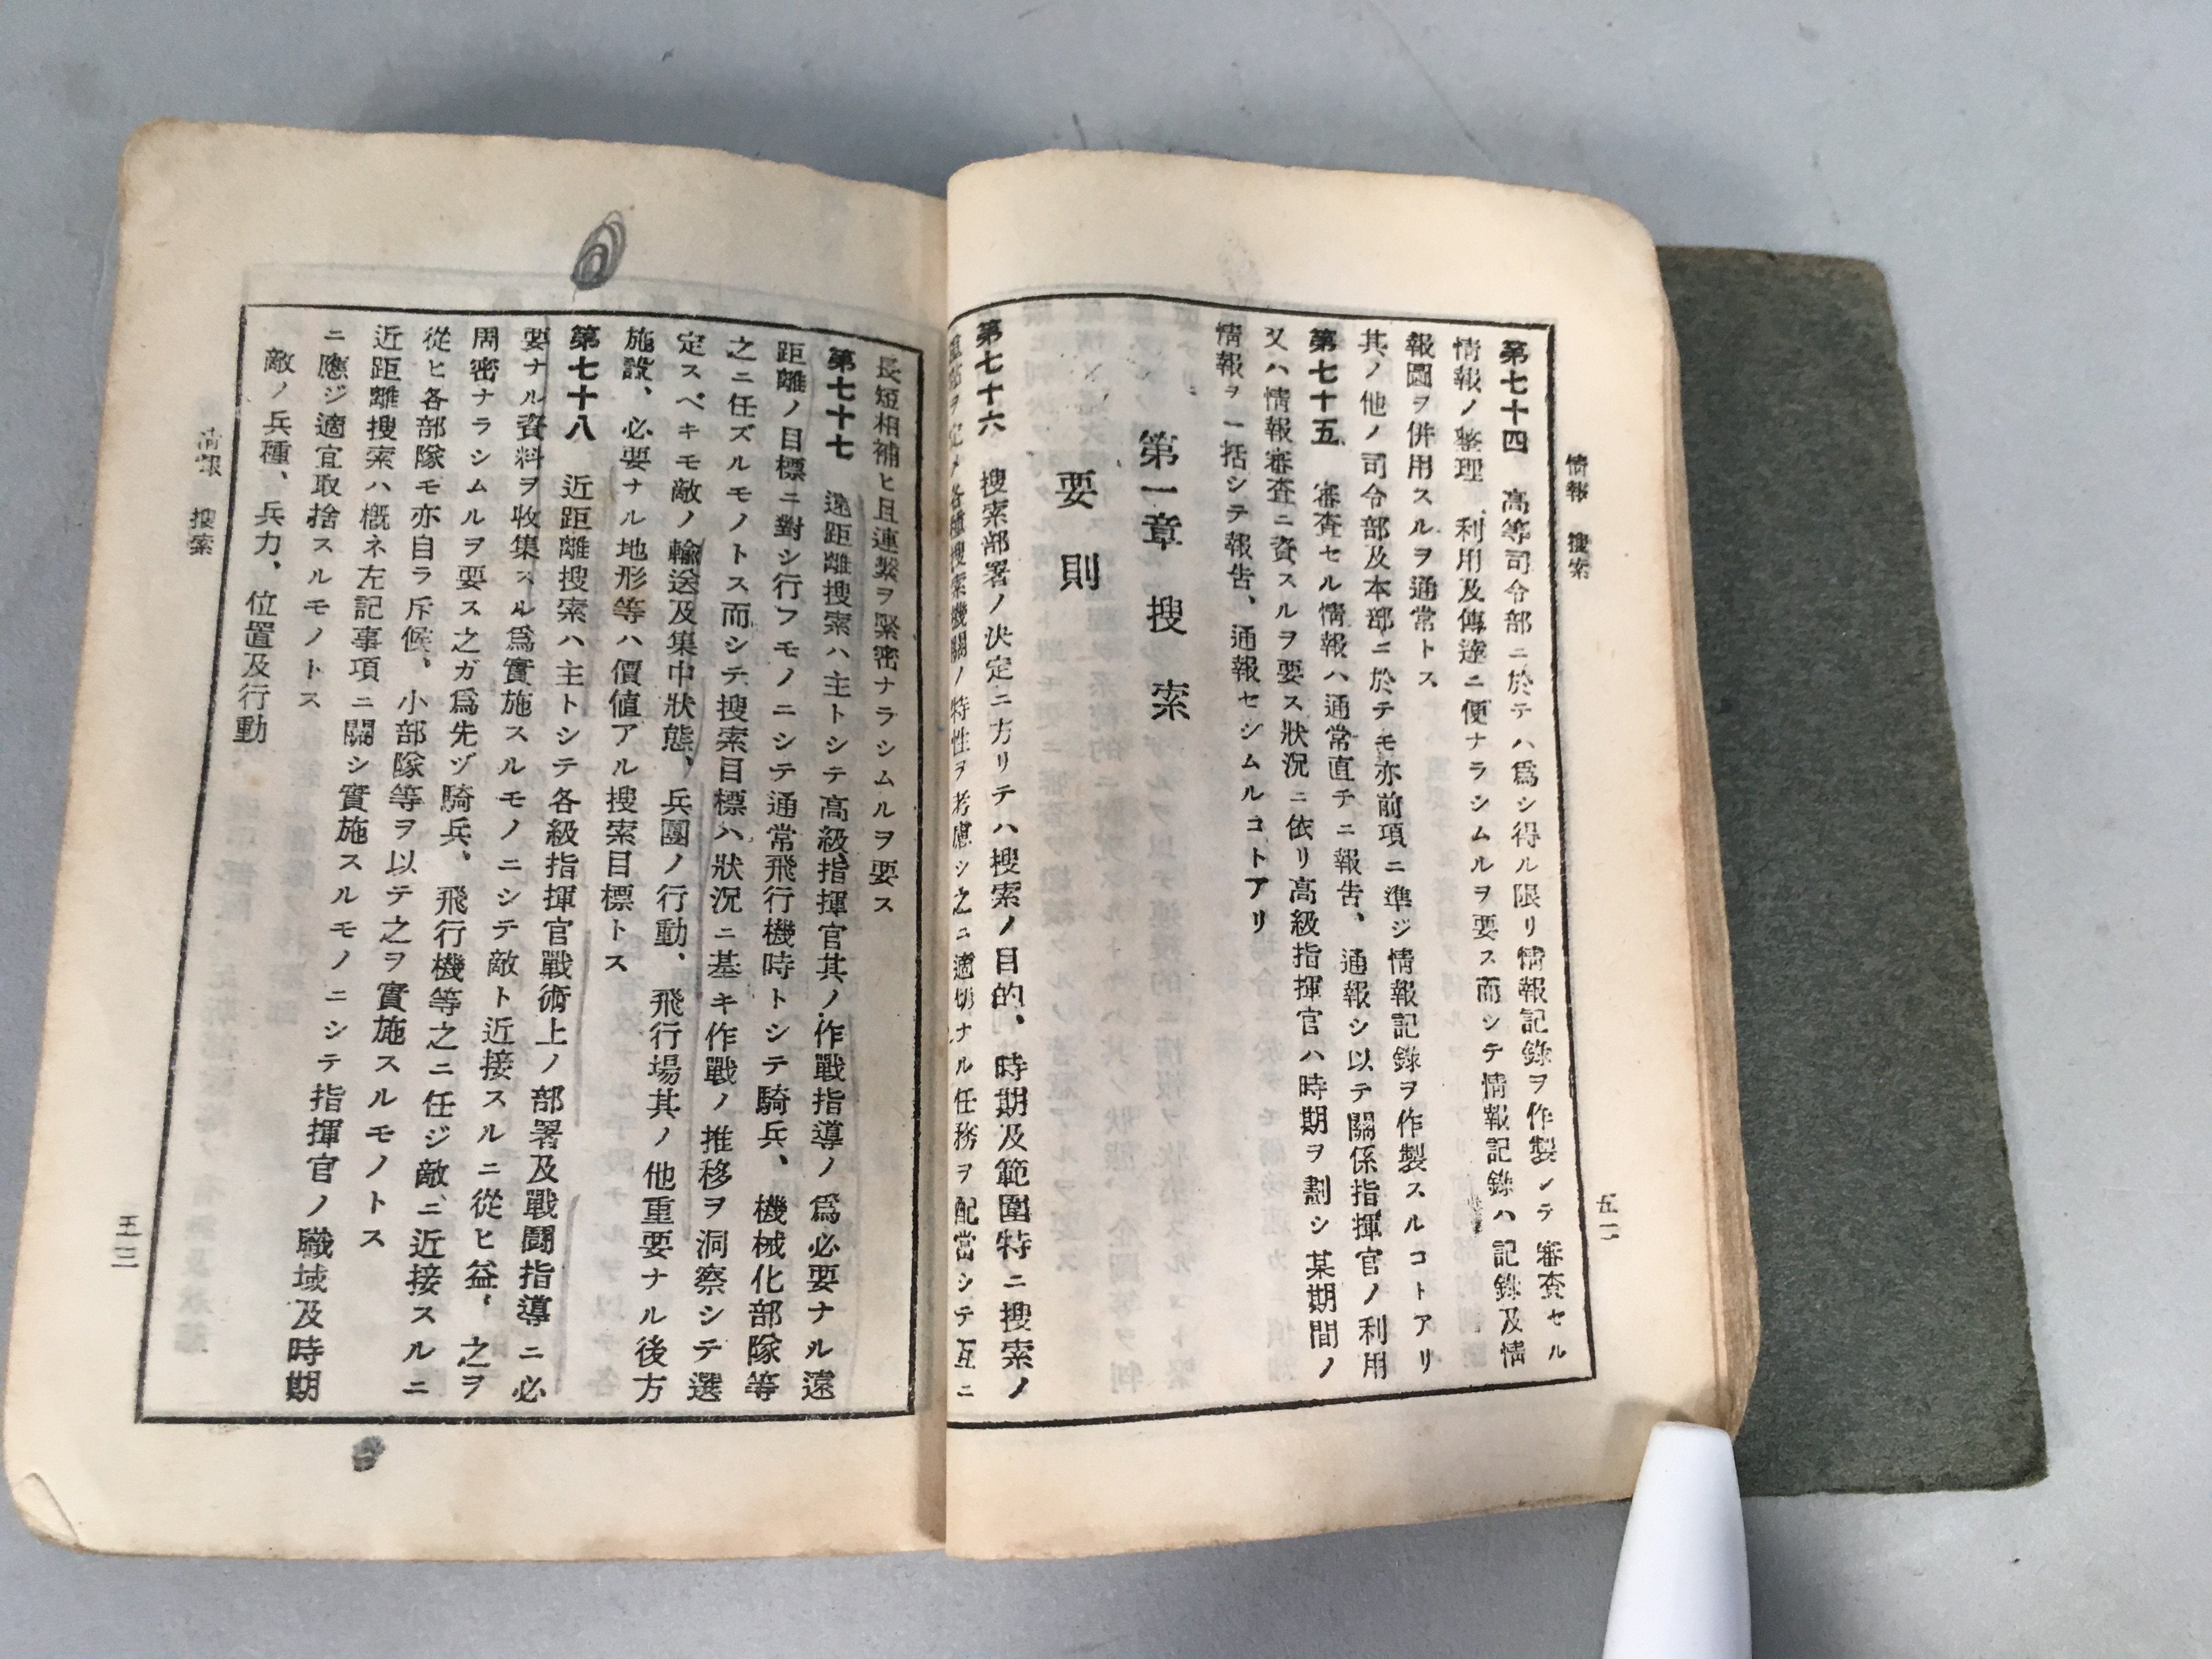 情報　搜索
五二
第七十四　高等司令部ニ於テハ爲シ得ル限リ情報記錄ヲ作製シテ審査セル
情報ノ整理、利用及傳達ニ便ナラシムルヲ要ス而シテ情報記錄ハ記錄及情
報圖ヲ併用スルヲ通常トス
其ノ他ノ司令部及本部ニ於テモ亦前項ニ準ジ情報記錄ヲ作製スルコトアリ
第七十五　審査セル情報ハ通常直チニ報告、通報シ以テ關係指揮官ノ利用
又ハ情報審査ニ資スルヲ要ス狀況ニ依リ高級指揮官ハ時期ヲ劃シ某期間ノ
情報ヲ一括シテ報告、通報セシムルコトアリ
第一章　搜　索
要　則
第七十六　搜索部署ノ決定ニ方リテハ搜索ノ目的、時期及範圍特ニ搜索ノ
各種搜索機關ノ特性ヲ考慮シ之ニ適切ナル任務ヲ配當シテ互ニ
長短相補ヒ且連繫ヲ緊密ナラシムルヲ要ス
第七十七　遠距離搜索ハ主トシテ高級指揮官其ノ作戰指導ノ爲必要ナル遠
距離ノ目標ニ對シ行フモノニシテ通常飛行機時トシテ騎兵、機械化部隊等
之ニ任ズルモノトス而シテ搜索目標ハ狀況ニ基キ作戰ノ推移ヲ洞察シテ選
定スベキモ敵ノ輸送及集中狀態、兵團ノ行動、飛行場其ノ他重要ナル後方
施設、必要ナル地形等ハ價値アル搜索目標トス
第七十八　近距離搜索ハ主トシテ各級指揮官戰術上ノ部署及戰鬪指導ニ必
要ナル資料ヲ收集スル爲實施スルモノニシテ敵ト近接スルニ從ヒ益〻之ヲ
周密ナラシムルヲ要ス之ガ爲先ヅ騎兵、飛行機等之ニ任ジ敵ニ近接スルニ
從ヒ各部隊モ亦自ラ斥候、小部隊等ヲ以テ之ヲ實施スルモノトス
近距離搜索ハ槪ネ左記事項ニ關シ實施スルモノニシテ指揮官ノ職域及時期
ニ應ジ適宜取捨スルモノトス
敵ノ兵種、兵力、位置及行動
情報　搜索
五三